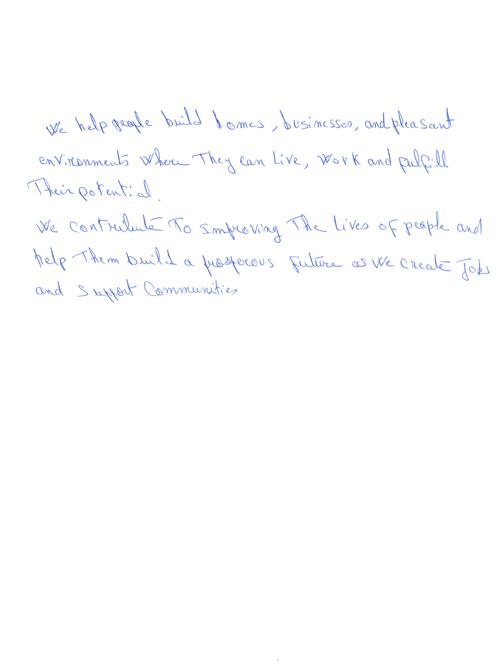 We help people build homes, businesses, and pleasant
environments where They can Live, work and fulfill
Their potential.
We contribute To improving The Lives of people and
help Them build a prosperous future as We create Jobs
and support Communities